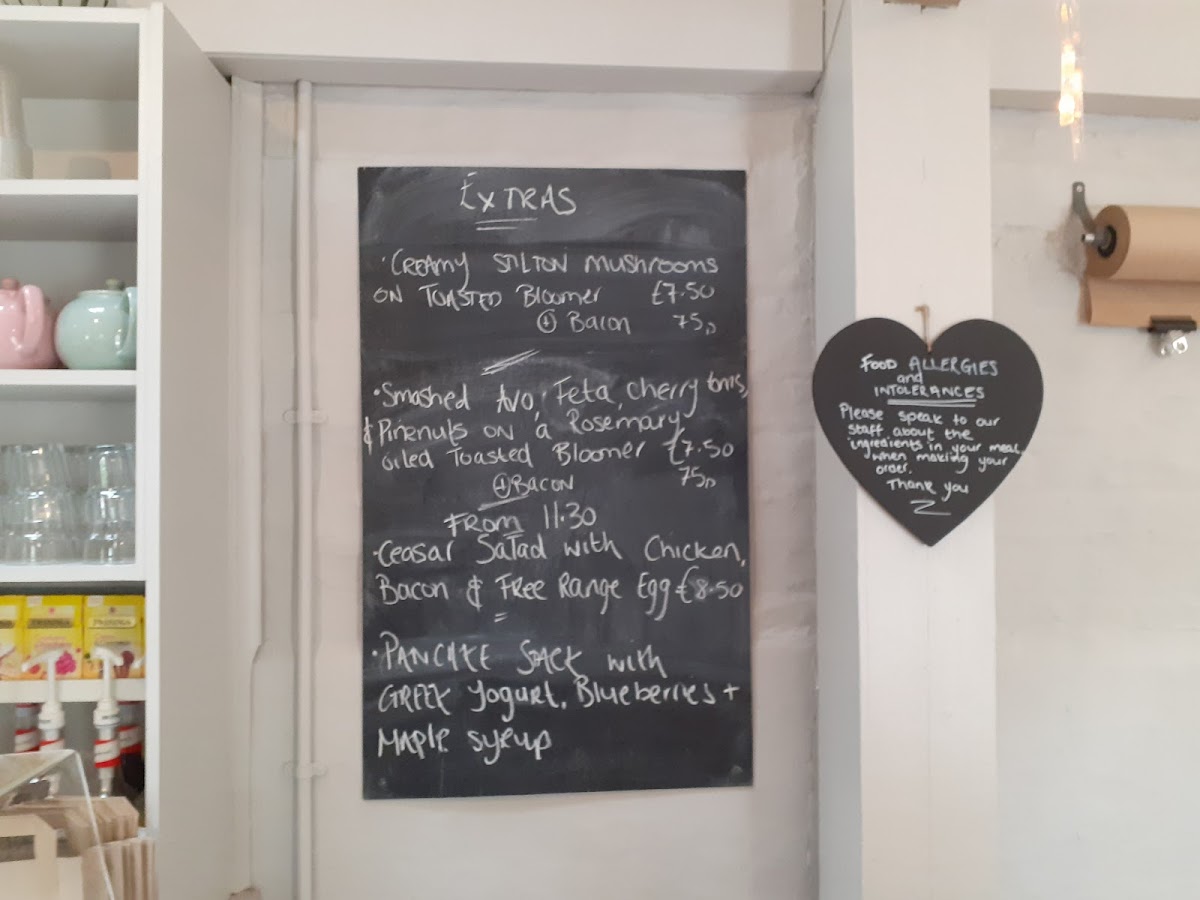 EXTRAS
· CREAMY STILTON MUSHROOMS
ON TOASTED BLOOMER £7.50
⊕ Bacon 75p
· Smashed Avo, Feta, cherry toms,
& Pinenuts on a Rosemary
oiled Toasted Bloomer £7.50
⊕ BACON 75p
FROM 11.30
· Ceasar Salad with Chicken,
Bacon & Free Range Egg £8.50
· PANCAKE STACK with
GREEK Yogurt, Blueberries +
MAPLE Syrup
FOOD ALLERGIES
and
INTOLERANCES
Please speak to our
staff about the
ingredients in your meal,
when making your
order.
Thank you
TWININGS